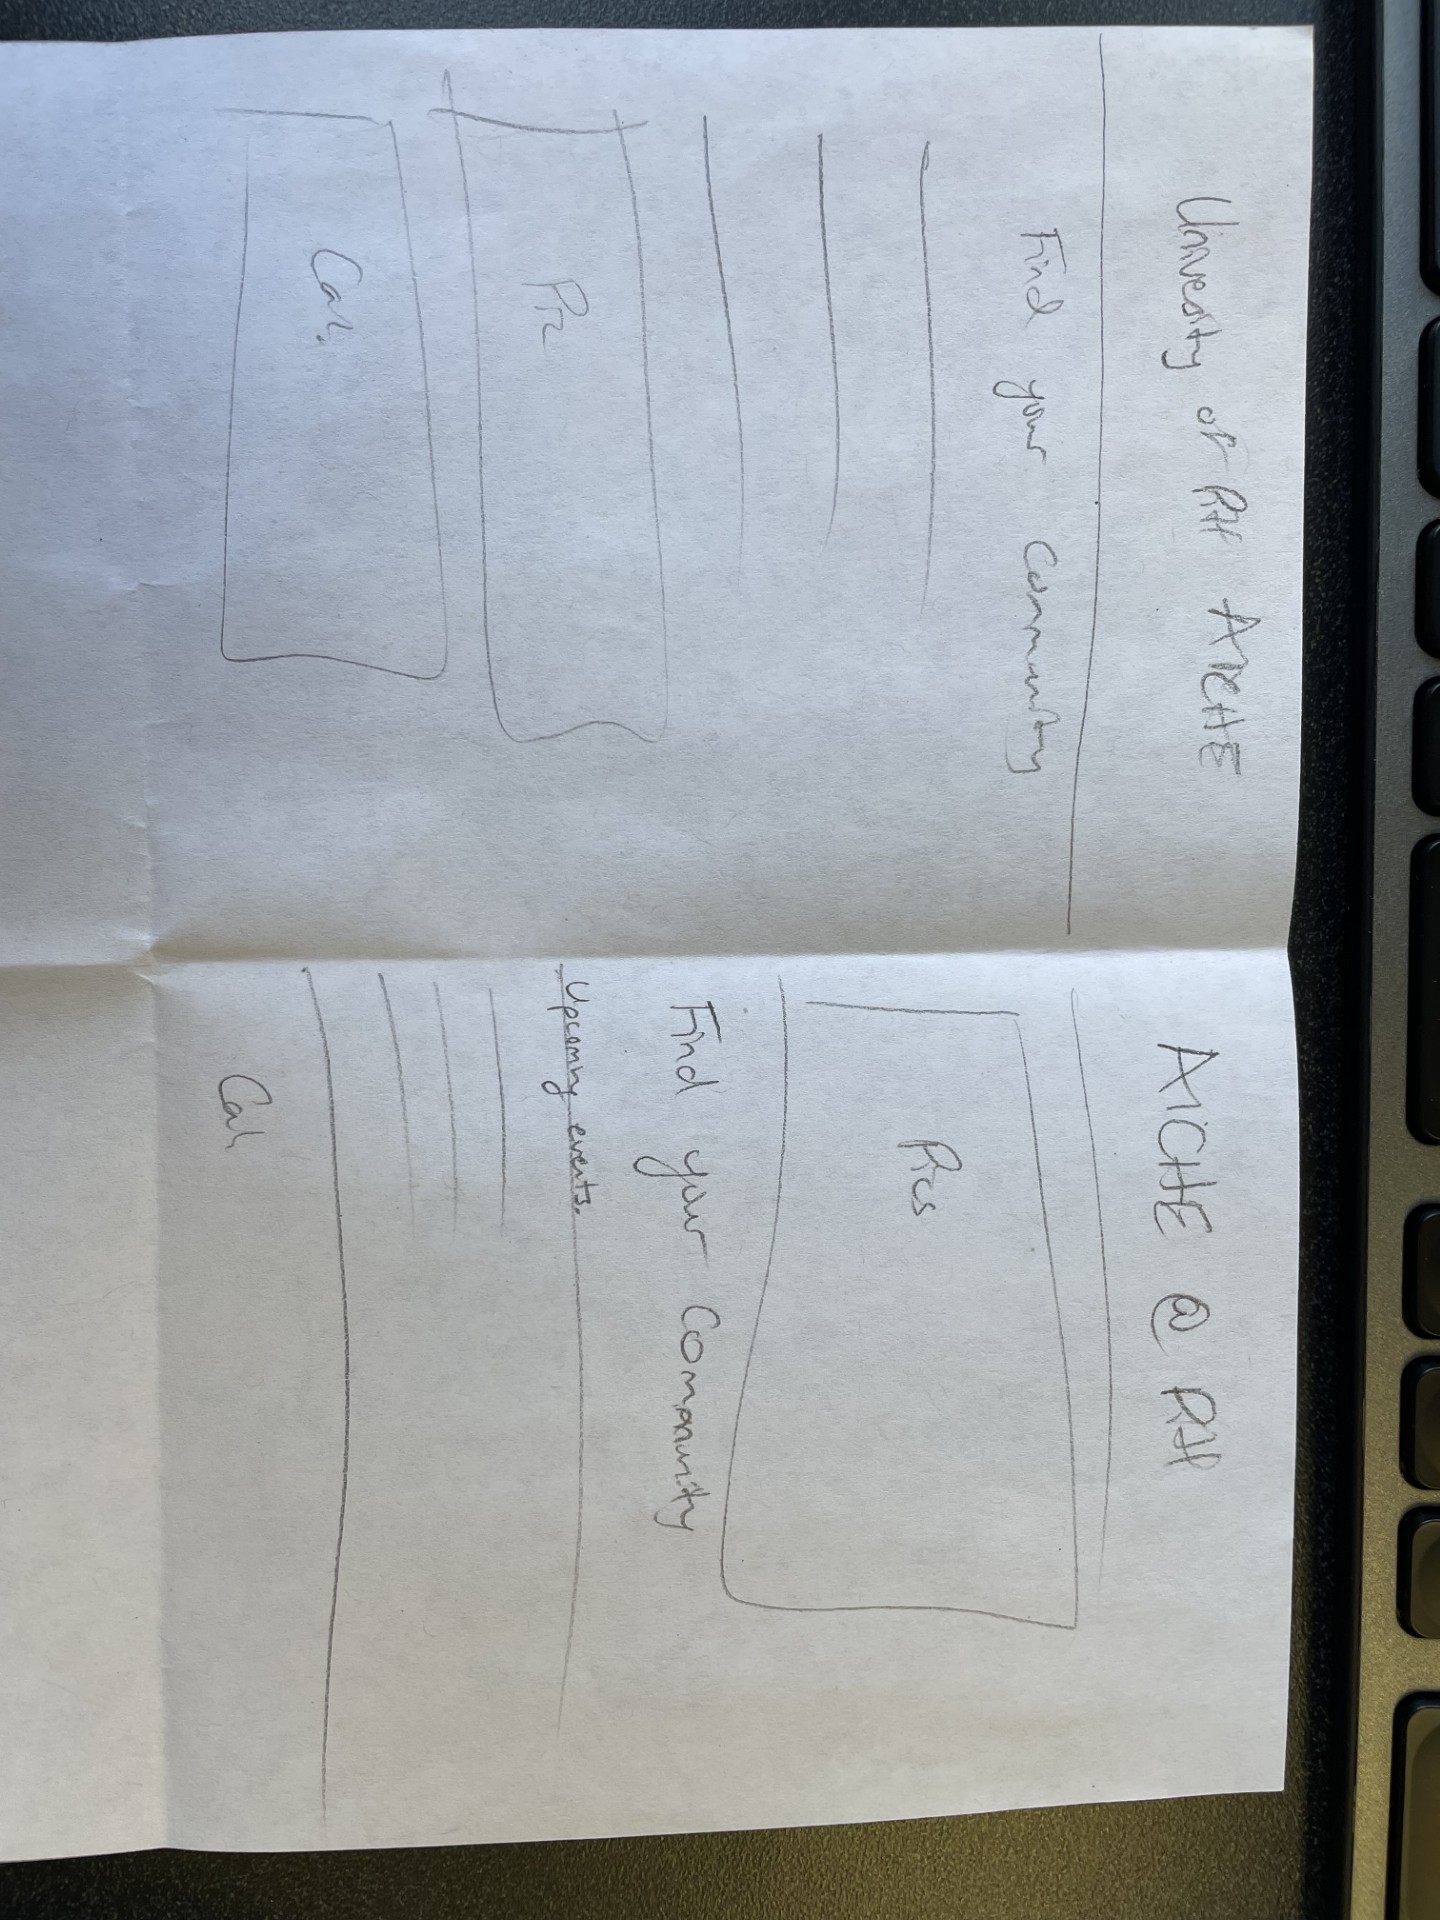 University of RH AICHE
Find your Community
Pic
Cal.
AICHE @ RH
Pics
Find your Community
Upcoming events.
Cal